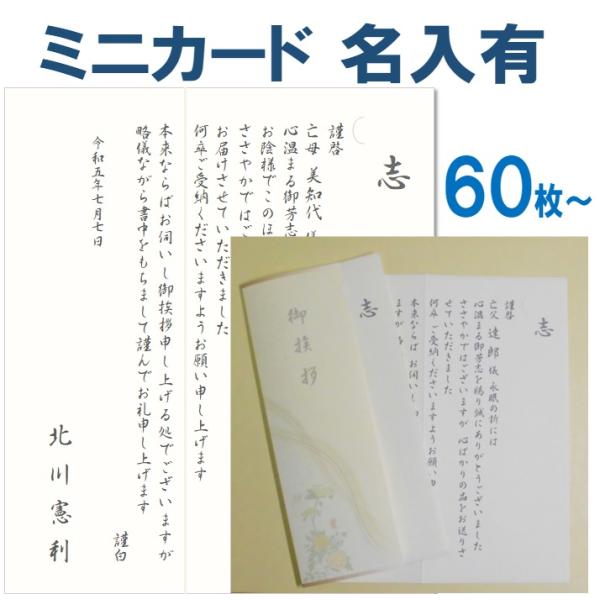 ミニカード 名入有
60枚~
志
謹啓
亡母 美知代 儀
心温まる御芳志
お陰様でこのほ
ささやかではご
お届けさせていただきました
何卒ご受納くださいますようお願い申し上げます
本来ならばお伺いし御挨拶申し上げる処でございますが
略儀ながら書中をもちまして謹んでお礼申し上げます
謹白
令和五年七月七日
北川憲利
御挨拶
志
本来ならば お伺いし
ますが
志
謹啓
亡父 達郎 儀 永眠の折には
心温まる御芳志を賜り誠にありがとうございました
ささやかではございますが 心ばかりの品をお送りさ
せていただきました
何卒 ご受納くださいますようお願い